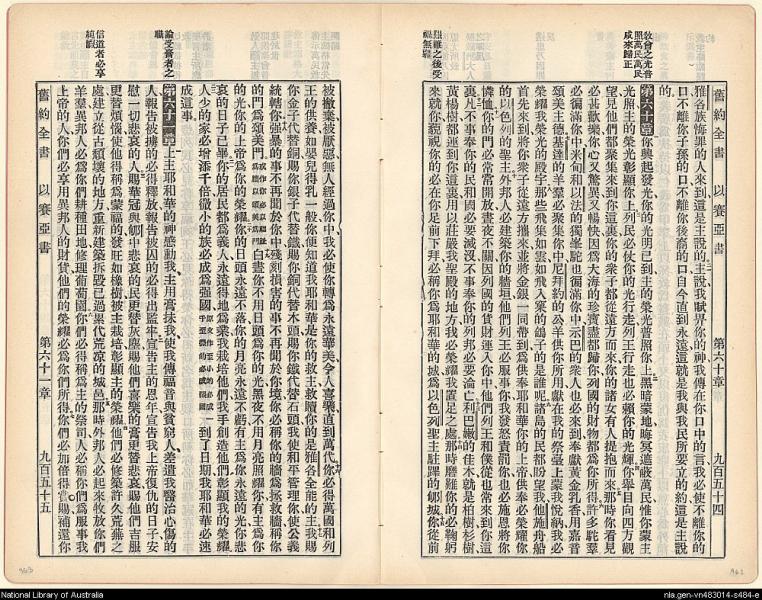 舊約全書 以賽亞書 第六十章 九百五十四
教會之光普照萬民萬民咸來歸正
艱難之後受福無疆
雅各族悔罪的人來到這是主說的主說我賦畀你的神我傳在你口中的言我必使不離你的
口不離你子孫的口不離你後裔的口自今直到永遠這就是我與我民所要立的約這是主說
的
第六十章 你興起發光你的光明已到主的榮光普照你上黑暗蒙地晦冥遮蔽萬民惟你蒙主
光照主的榮光彰顯你上列民必仗你的光行走列王行走也必賴你的光輝你舉目向四方觀
望見他們都聚集來到你這裏你的衆子都從遠方而來你的諸女有人提抱而來那時你看見
必甚歡樂你心又驚異又暢快因爲大海的珍寶盡都歸你列國的財物都爲你所得許多駝羣
必徧滿你中米甸和以法的獨峯駝也徧滿你中示巴的衆人也必來到奉獻黃金乳香用嘉音
頌美主基達的羊羣必聚集你中尼拜約的公羊供你所用獻在我的祭臺上蒙我悅納我必
榮耀我榮光的殿那些飛集如雲如飛入巢的鴿子的是誰呢諸島的民都盼望我他施舟船
首先來到將你衆子從遠方攜來並將金銀一同帶到爲供奉耶和華你的上帝供奉必榮耀你
的以色列的聖主外邦人必建築你的牆垣他們列王必服事你我發怒責罰你也必施恩將你
憐恤你的門必常常開放晝夜不關因列國的貨財運入你中他們列王和僕從也常來到你這
裏凡不事奉你的民和國必要滅沒不事奉你的列邦必要淪亡利巴嫩的佳木就是柏樹杉樹
黃楊樹都運到你這裏用以莊嚴我聖殿的地方我必榮耀我置足之處那時磨難你的必鞠躬
來就你藐視你的必在你足前下拜必稱你爲耶和華的城爲以色列聖主駐蹕的郇城你從前
論受膏者之職
信道者必享純福
被撇棄被厭惡無人經過你中我必使你轉爲永遠華美令人喜樂直到萬代你必得萬國和列
王的供養如嬰兒得乳一般你便知道我耶和華是你的救主救贖你的是雅各全能的主我賜
你金子代替銅賜你銀子代替鐵賜你銅代替木頭賜你鐵代替石頭我使和平管理你使公義
統轄你強暴的事不再聞於你中殘刻損害的事不再聞於你境你必稱你的牆爲拯救牆稱你
的門爲頌美門 白晝你不用日頭爲你的光黑夜不用月亮照耀你有主爲你
的光你的上帝爲你的榮耀你的日頭永遠不落你的月亮永遠不虧有主爲你永遠的光你悲
哀的日子已畢你的居民都爲義人永遠得地爲業我栽培他們我手創造他們彰顯我的榮耀
人少的家必增添千倍微小的族必成爲強國 一到了日期我耶和華必速
成這事
第六十一章 上主耶和華的神感動我主用膏抹我使我傳福音與貧窮人差遣我醫治心傷的
人報告被擄的必得釋放報告被囚的必得出監牢宣告主的恩年宣告我上帝復仇的日子安
慰一切悲哀的人賜華冠與郇中悲哀的民更替灰塵賜他們喜樂的膏更替悲哀賜他們吉服
更替煩惱使他們稱爲蒙福的發旺如橡樹被主栽培彰顯主的榮耀他們必修築許久荒蕪之
處建立從古頹壞的地方重新建築拆毀已過累代荒凉的城邑那時外邦人必起來牧放你們
羊羣異邦人必爲你們耕種田地修理葡萄園你們必得稱爲主的祭司人必稱你們爲服事我
上帝的人你們必享用異邦人的財貨他們的榮耀必爲你們所得你們必加倍得賞賜補還你
舊約全書 以賽亞書 第六十一章 九百五十五
National Library of Australia
nla.gen-vn483014-s484-e